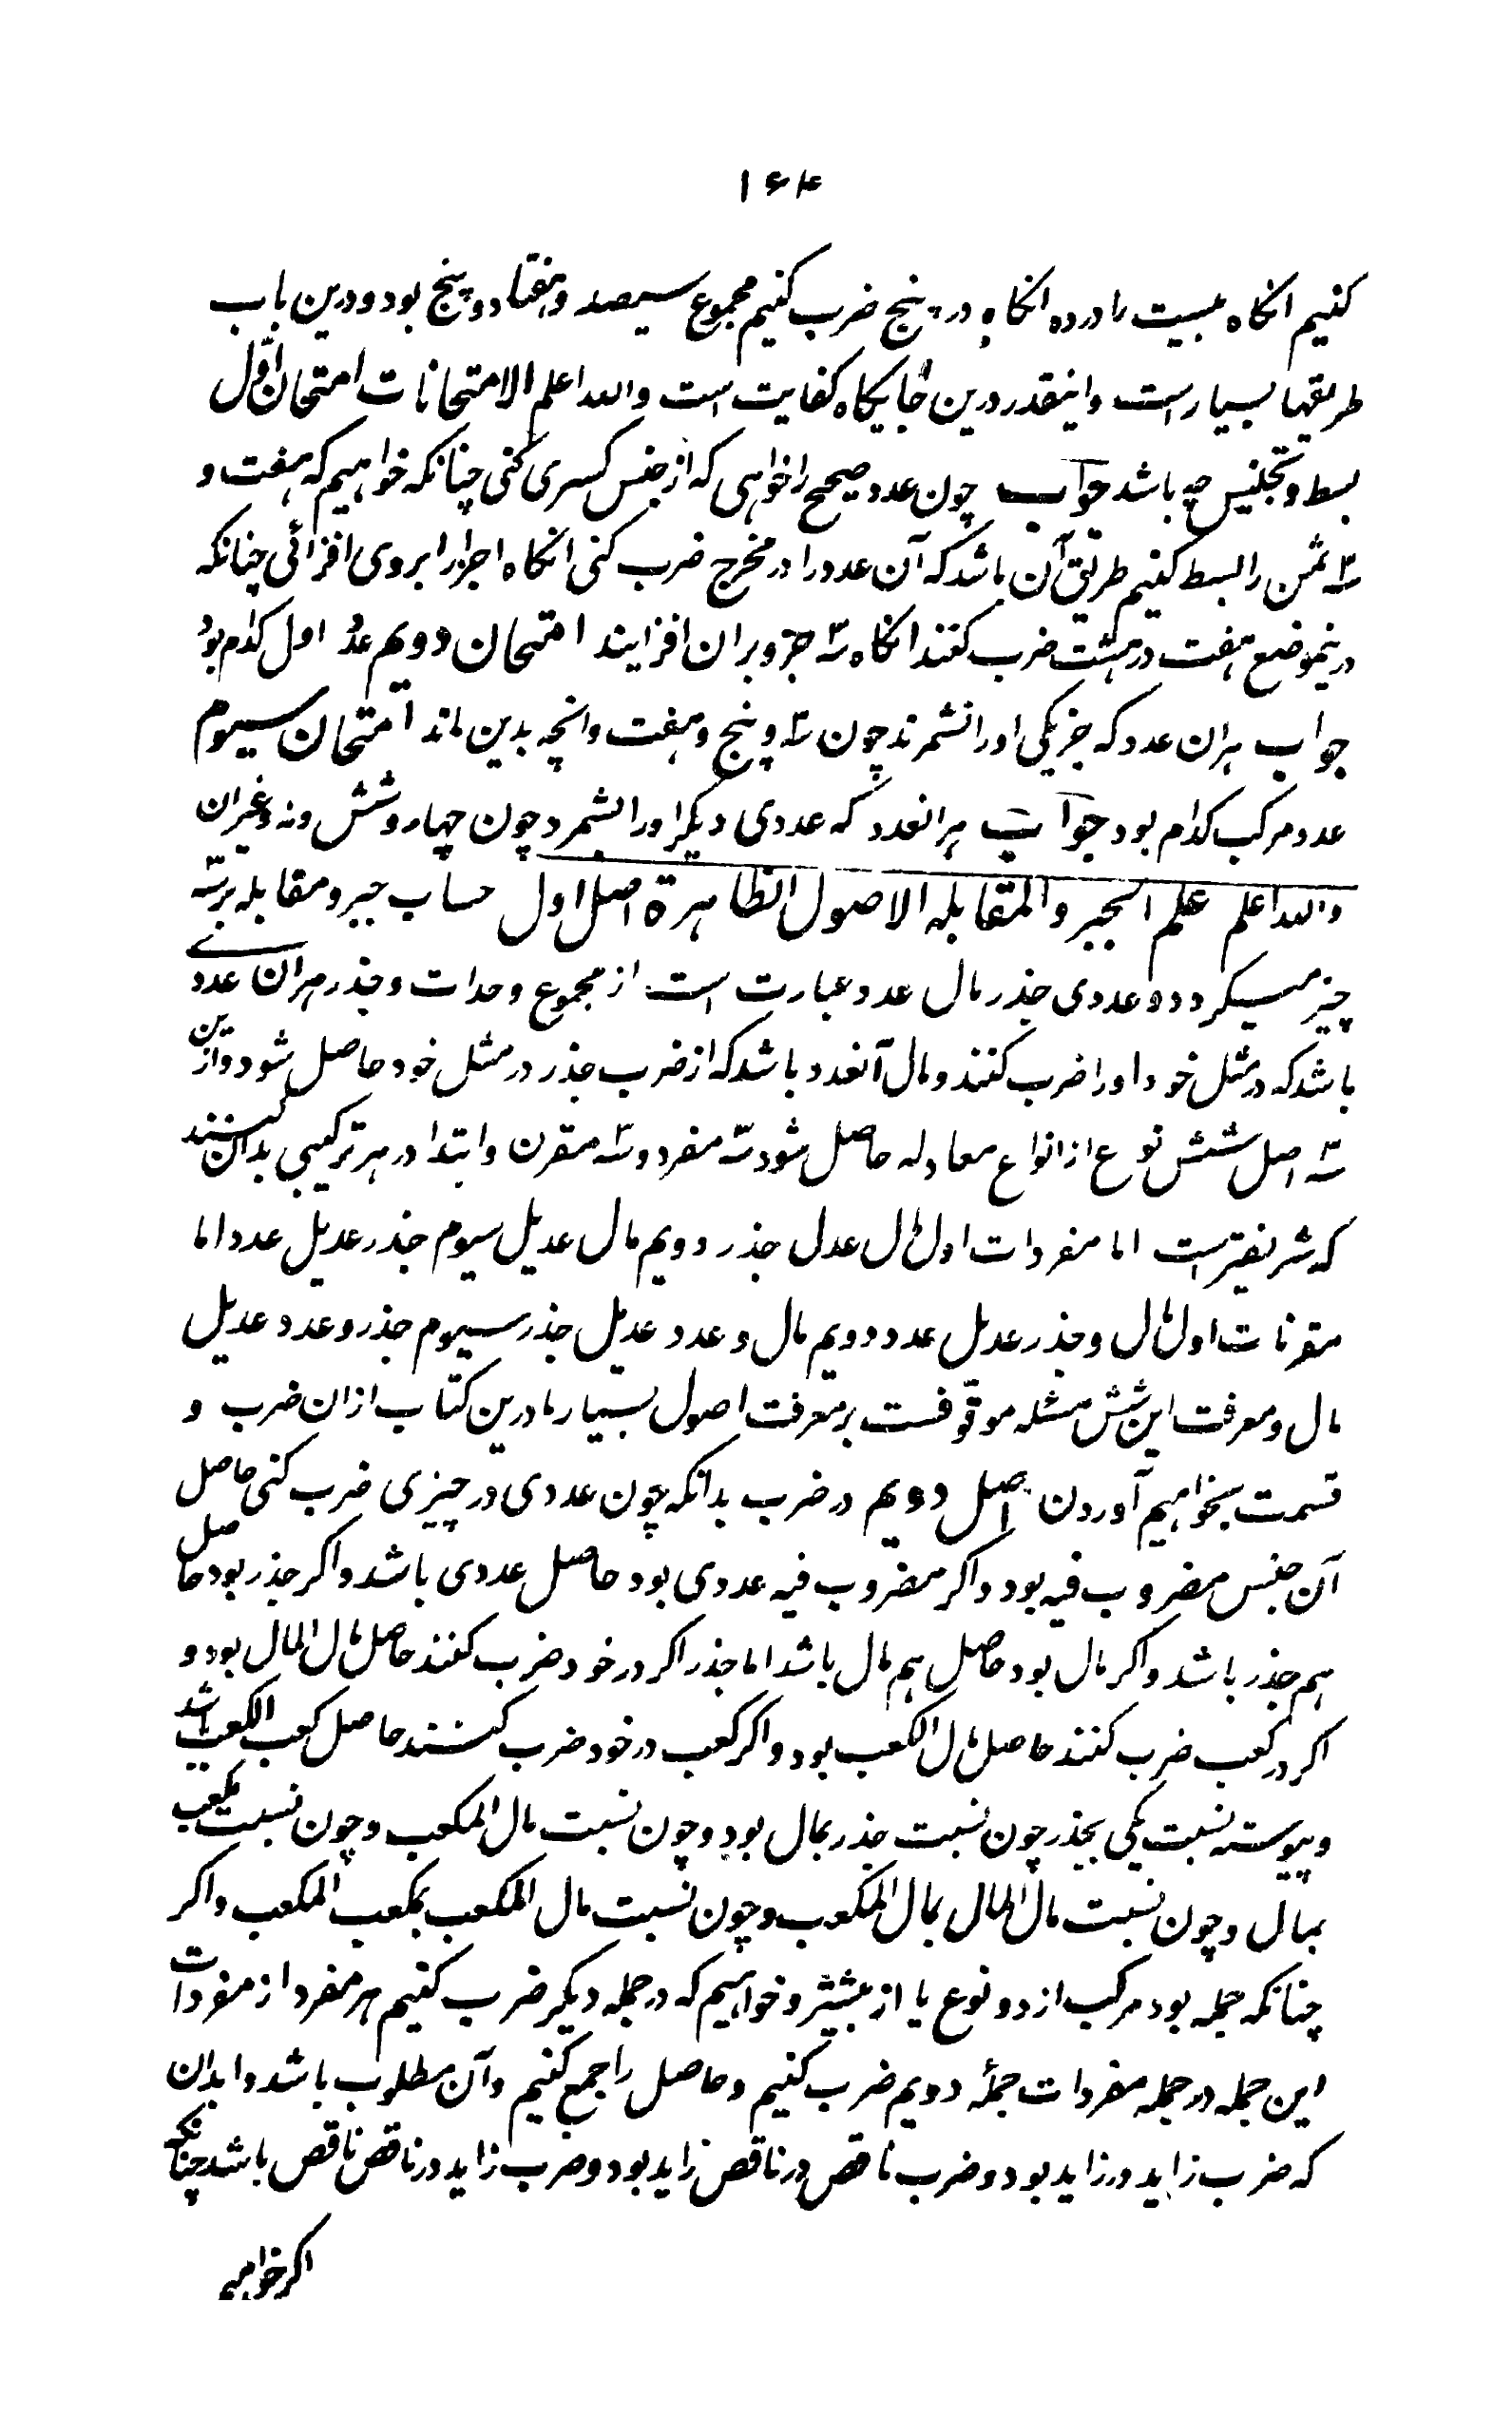 ۱۶۴
کنیم انکاه بیست را در ده انکاه در پنج ضرب کنیم مجموع سیصد و هفتاد و پنج بود و درین باب
طریقها بسیار است و اینقدر درین جایکاه کفایت است والله اعلم الامتحانات امتحان اول
بسط و تجنیس چه باشد جواب چون عدد صحیح را خواهی که از جنس کسری کنی چنانکه خواهیم که هفت و
سه ثمن را بسط کنیم طریق آن باشد که آن عدد را در مخرج ضرب کنی انکاه اجزا را بروی افزائی چنانکه
درینموضع هفت در هشت ضرب کنند انکاه سه جزو بران افزایند امتحان دویم عدد اول کدام بود
جواب هران عدد که جز یکی او را نشمرند چون سه و پنج و هفت وانچه بدین ماند امتحان سیوم
عدد مرکب کدام بود جواب هرانعدد که عددی دیکر او را بشمرد چون چهار و شش و نه و غیران
والله اعلم علم الجبر والمقابله الاصول الظاهرة اصل اول حساب جبر و مقابله بر سه
چیز میکردد و عددی جذر مال عدد عبارت است از مجموع وحدات و جذر هران عددی
باشد که در مثل خود او را ضرب کنند و مال آنعدد باشد که از ضرب جذر در مثل خود حاصل شود و ازین
سه اصل شش نوع از انواع معادله حاصل شود سه مفرد و سه مقرن و ابتدا در هر ترکیبی بدان کنند
که شریفترست اما مفردات اول مال عدل جذر دویم مال عدیل سیوم جذر عدیل عدد اما
مقرنات اول مال و جذر عدیل عدد دویم مال و عدد عدیل جذر سیوم جذر و عدد عدیل
مال و معرفت این شش مسئله موقوفست بر معرفت اصول بسیار ما درین کتاب ازان ضرب و
قسمت بخواهیم آوردن اصل دویم در ضرب بدانکه چون عددی در چیزی ضرب کنی حاصل
آن جنس مضروب فیه بود و اکر مضروب فیه عددی بود حاصل عددی باشد و اکر جذر بود حاصل
هم جذر باشد و اکر مال بود حاصل هم مال باشد اما جذر اکر در خود ضرب کنند حاصل مال المال بود و
اکر در کعب ضرب کنند حاصل مال الکعب بود و اکر کعب در خود ضرب کنند حاصل کعب الکعب باشد
و پیوسته نسبت یکی بجذر چون نسبت جذر بمال بود و چون نسبت مال المکعب و چون نسبت مکعب
بمال و چون نسبت مال المال بمال المکعب و چون نسبت مال المکعب بمکعب المکعب و اکر
چنانکه جمله بود مرکب از دو نوع یا از بیشتر و خواهیم که در جمله دیکر ضرب کنیم هر مفرد از مفردات
این جمله در جمله مفردات جملهٔ دویم ضرب کنیم و حاصل را جمع کنیم و آن مطلوب باشد و ابدان
که ضرب زاید در زاید بود و ضرب ناقص در ناقص زاید بود و ضرب زاید در ناقص ناقص باشد چنانکه
اکر خواهی